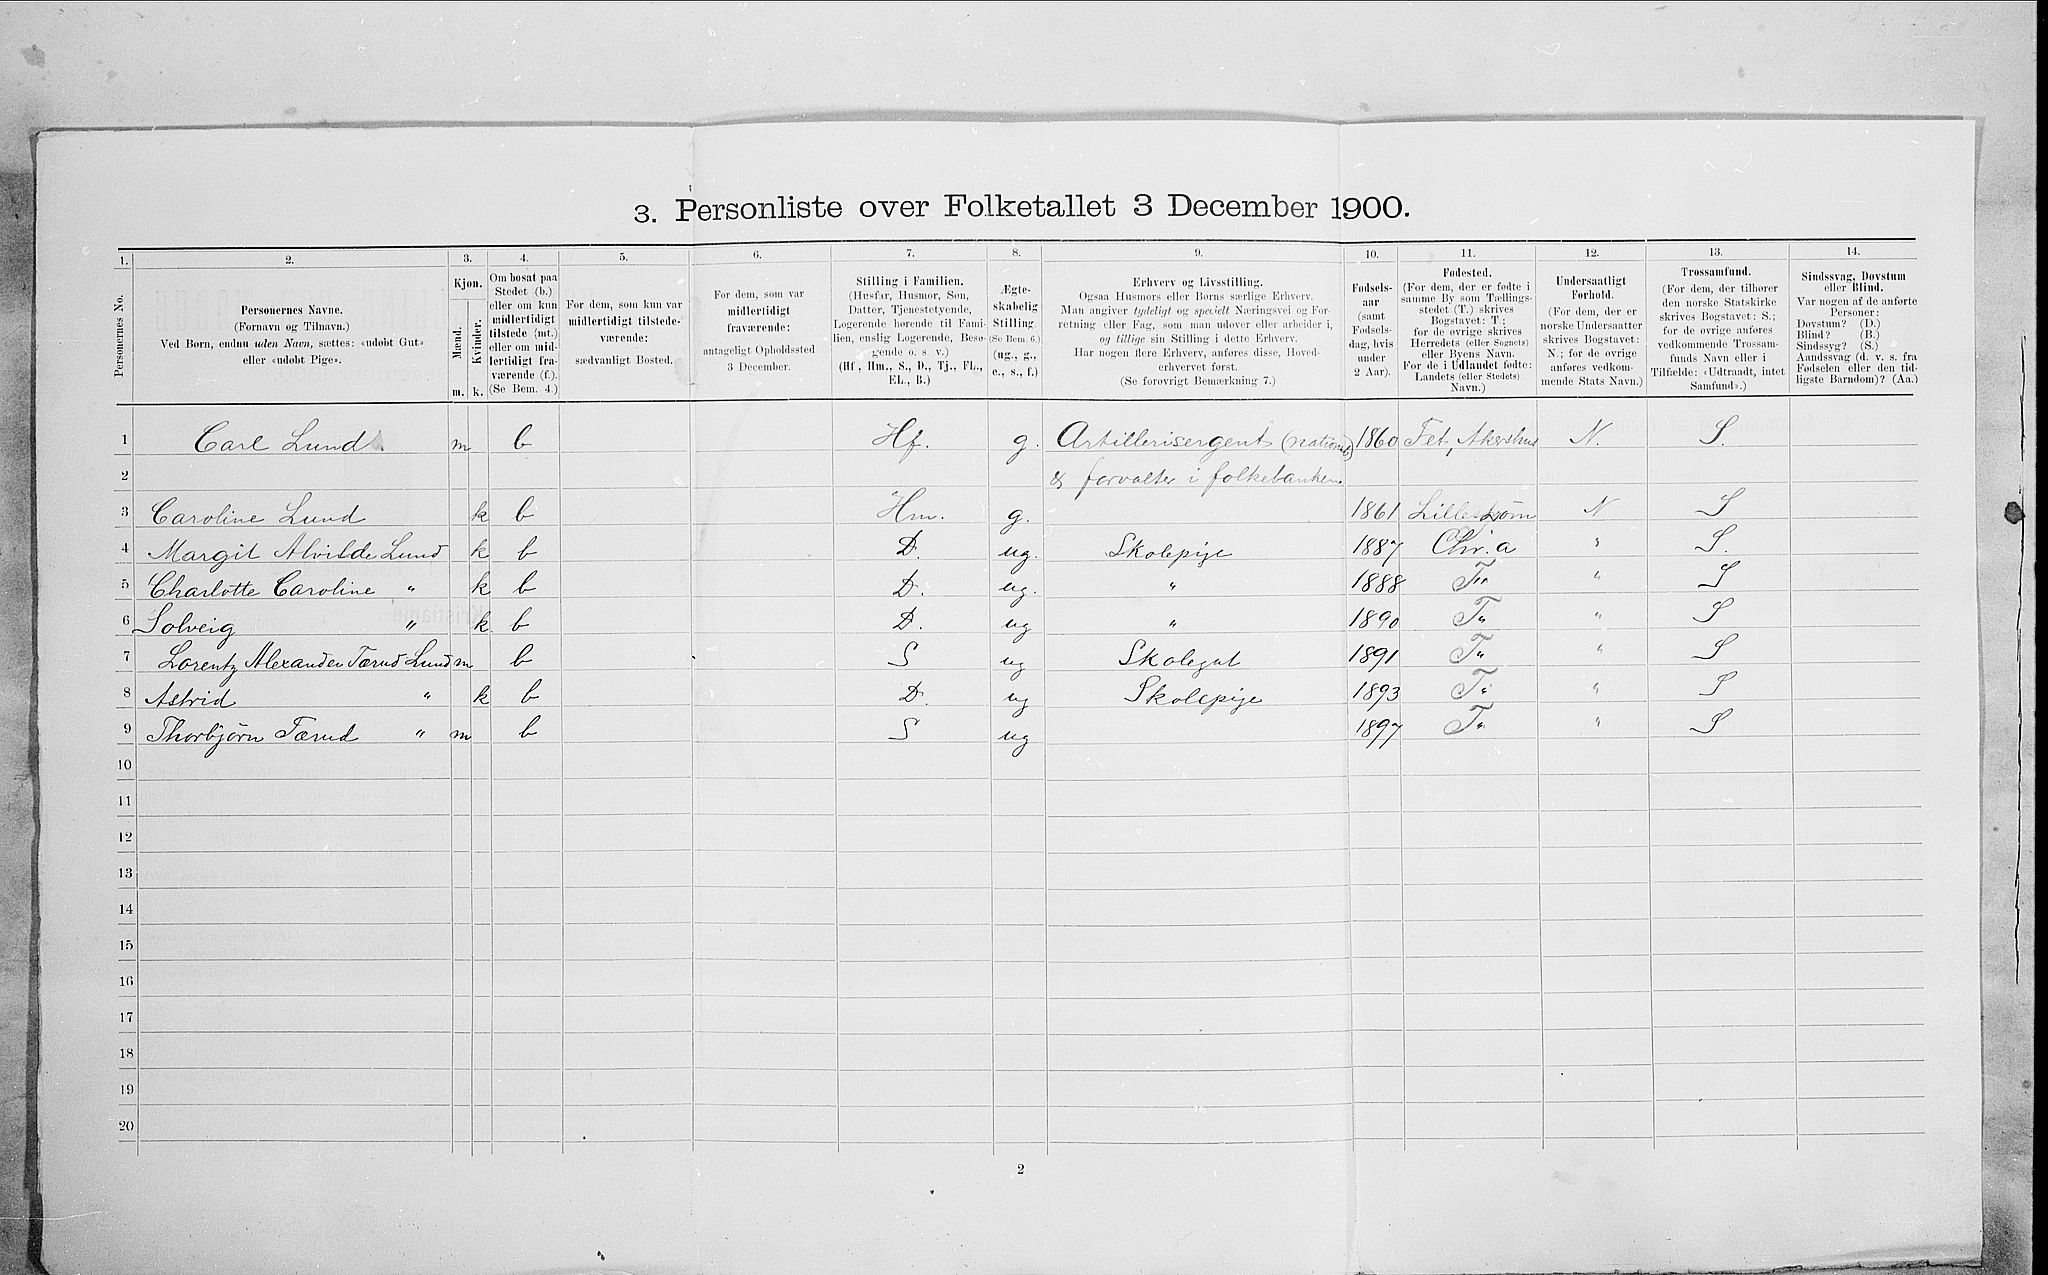 3. Personliste over Folketallet 3 December 1900.
1. 2. 3. 4. 5. 6. 7. 8. 9. 10. 11. 12. 13. 14.
Personernes No.
Personernes Navne.
(Fornavn og Tilnavn.)
Ved Børn, endnu uden Navn, sættes: «udøbt Gut»
eller «udøbt Pige».
Kjøn.
Mænd.
Kvinder.
m. k.
Om bosat paa
Stedet (b.)
eller om kun
midlertidigt
tilstede (mt.)
eller om mid-
lertidigt fra-
værende (f.).
(Se Bem. 4.)
For dem, som kun var
midlertidigt tilstede-
værende:
sædvanligt Bosted.
For dem, som var
midlertidigt
fraværende:
antageligt Opholdssted
3 December.
Stilling i Familien.
(Husfar, Husmor, Søn,
Datter, Tjenestetyende,
Logerende hørende til Fami-
lien, enslig Logerende, Besø-
gende o. s. v.)
(Hf., Hm., S., D., Tj., FL.,
EL., B.)
Ægte-
skabelig
Stilling.
(Se Bem. 6.)
(ug., g.,
e., s., f.)
Erhverv og Livsstilling.
Ogsaa Husmors eller Børns særlige Erhverv.
Man angiver tydeligt og specielt Næringsvei og For-
retning eller Fag, som man udøver eller arbeider i,
og tillige sin Stilling i dette Erhverv.
Har nogen flere Erhverv, anføres disse, Hoved-
erhvervet først.
(Se forøvrigt Bemærkning 7.)
Fødsels-
aar
(samt
Fødsels-
dag, hvis
under
2 Aar).
Fødested.
(For dem, der er fødte i
samme By som Tællings-
stedet (T.) skrives
Bogstavet: T;
for de øvrige skrives
Herredets (eller Sognets)
eller Byens Navn.
For de i Udlandet fødte:
Landets (eller Stedets)
Navn.)
Undersaatligt
Forhold.
(For dem, der er
norske Undersaatter
skrives Bogstavet:
N.; for de øvrige
anføres vedkom-
mende Stats Navn.)
Trossamfund.
(For dem, der tilhører
den norske Statskirke
skrives Bogstavet: S.;
for de øvrige anføres
vedkommende Trossam-
funds Navn eller i
Tilfælde: «Udtraadt, intet
Samfund».)
Sindssvag, Døvstum
eller Blind.
Var nogen af de anførte
Personer:
Døvstum? (D.)
Blind? (B.)
Sindssyg? (S.)
Aandssvag (d. v. s. fra
Fødselen eller den tid-
ligste Barndom)? (Aa.)
1 Carl Lund. m b Hf. g. Artillerisergent 1860 Fet, Akershus N. S.
2 & forvalter i folkebanken.
3 Caroline Lund k b Hm. g. 1861 Lillestrøm N S
4 Margit Alvilde Lund k b D. ug. Skolepige 1887 Chr.a " S.
5 Charlotte Caroline " k b D. ug. " 1888 T" " S
6 Solveig " k. b D. ug " 1890 T" " S
7 Lorentz Alexander Tærud Lund m b S ug Skolegut 1891 T" " S
8 Astrid " k b D. ug Skolepige 1893 T" " S
9 Thorbjørn Tærud " m b S ug 1897 T" " S
10
11
12
13
14
15
16
17
18
19
20
2